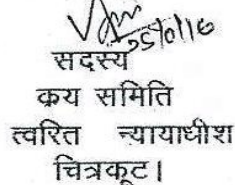 सदस्य
क्रय समिति
त्वरित न्यायाधीश
चित्रकूट।